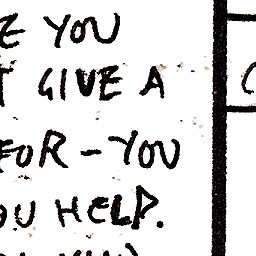 E YOU
T GIVE A
FOR - YOU
OU HELP.